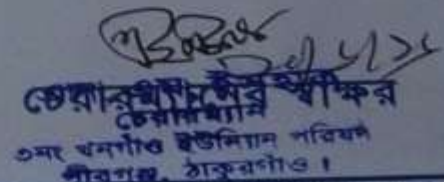 চেয়ারম্যানের স্বাক্ষর
চেয়ারম্যান
৩নং খনগাঁও ইউনিয়ন পরিষদ
পীরগঞ্জ, ঠাকুরগাঁও।